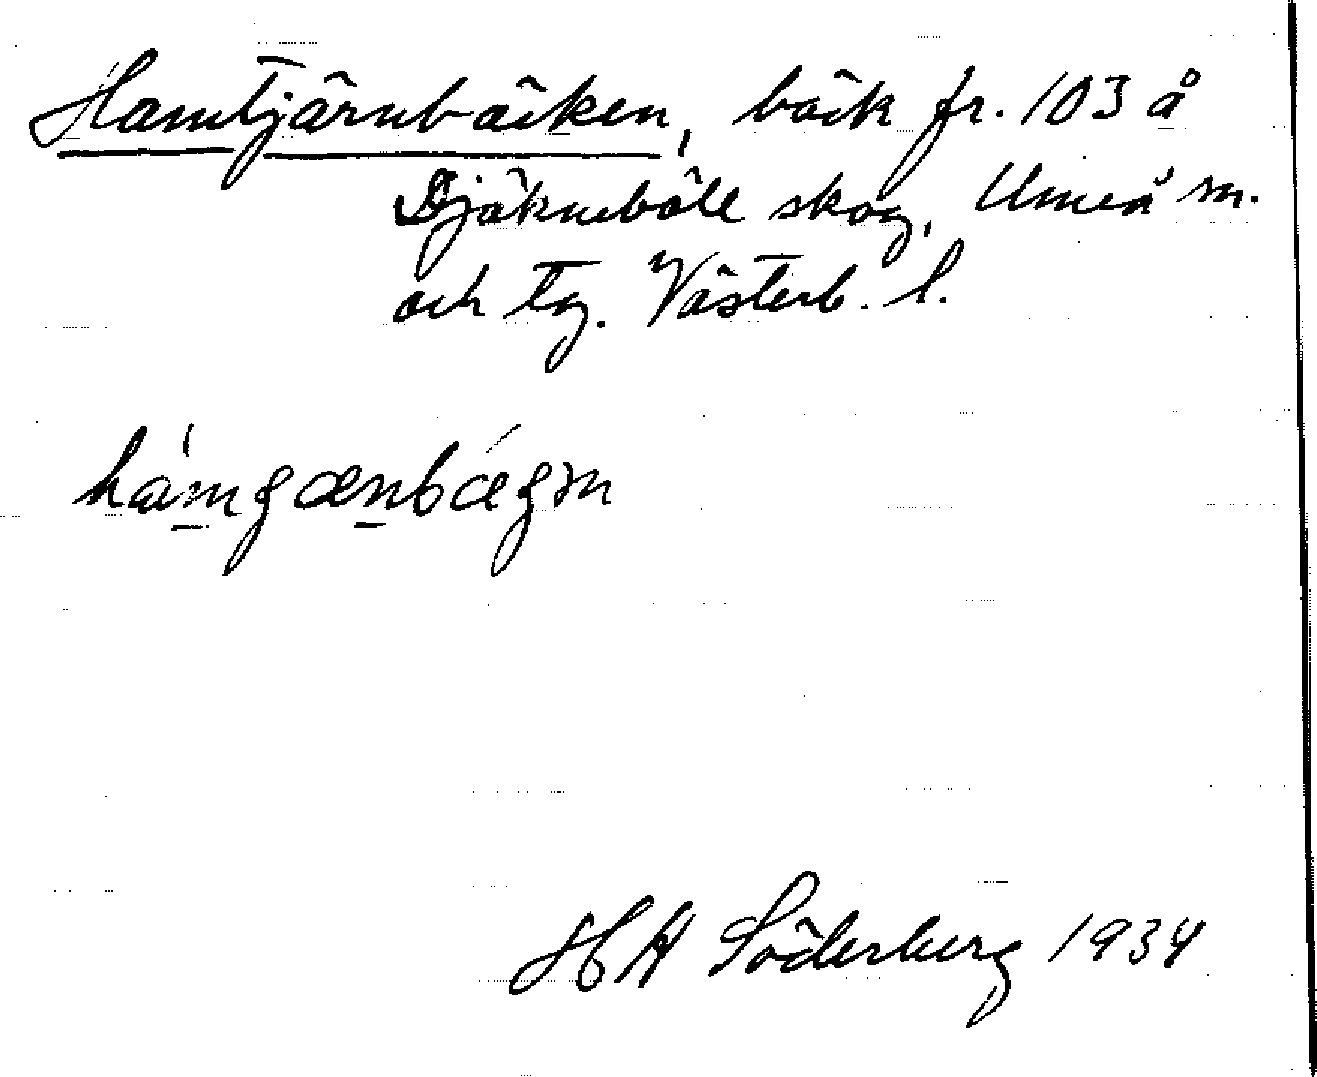 Hamtjärnbäcken, bäck fr. 103 å
Djäkneböle skog, Umeå sn.
och tg. Västerb. l.
HA Söderberg 1934